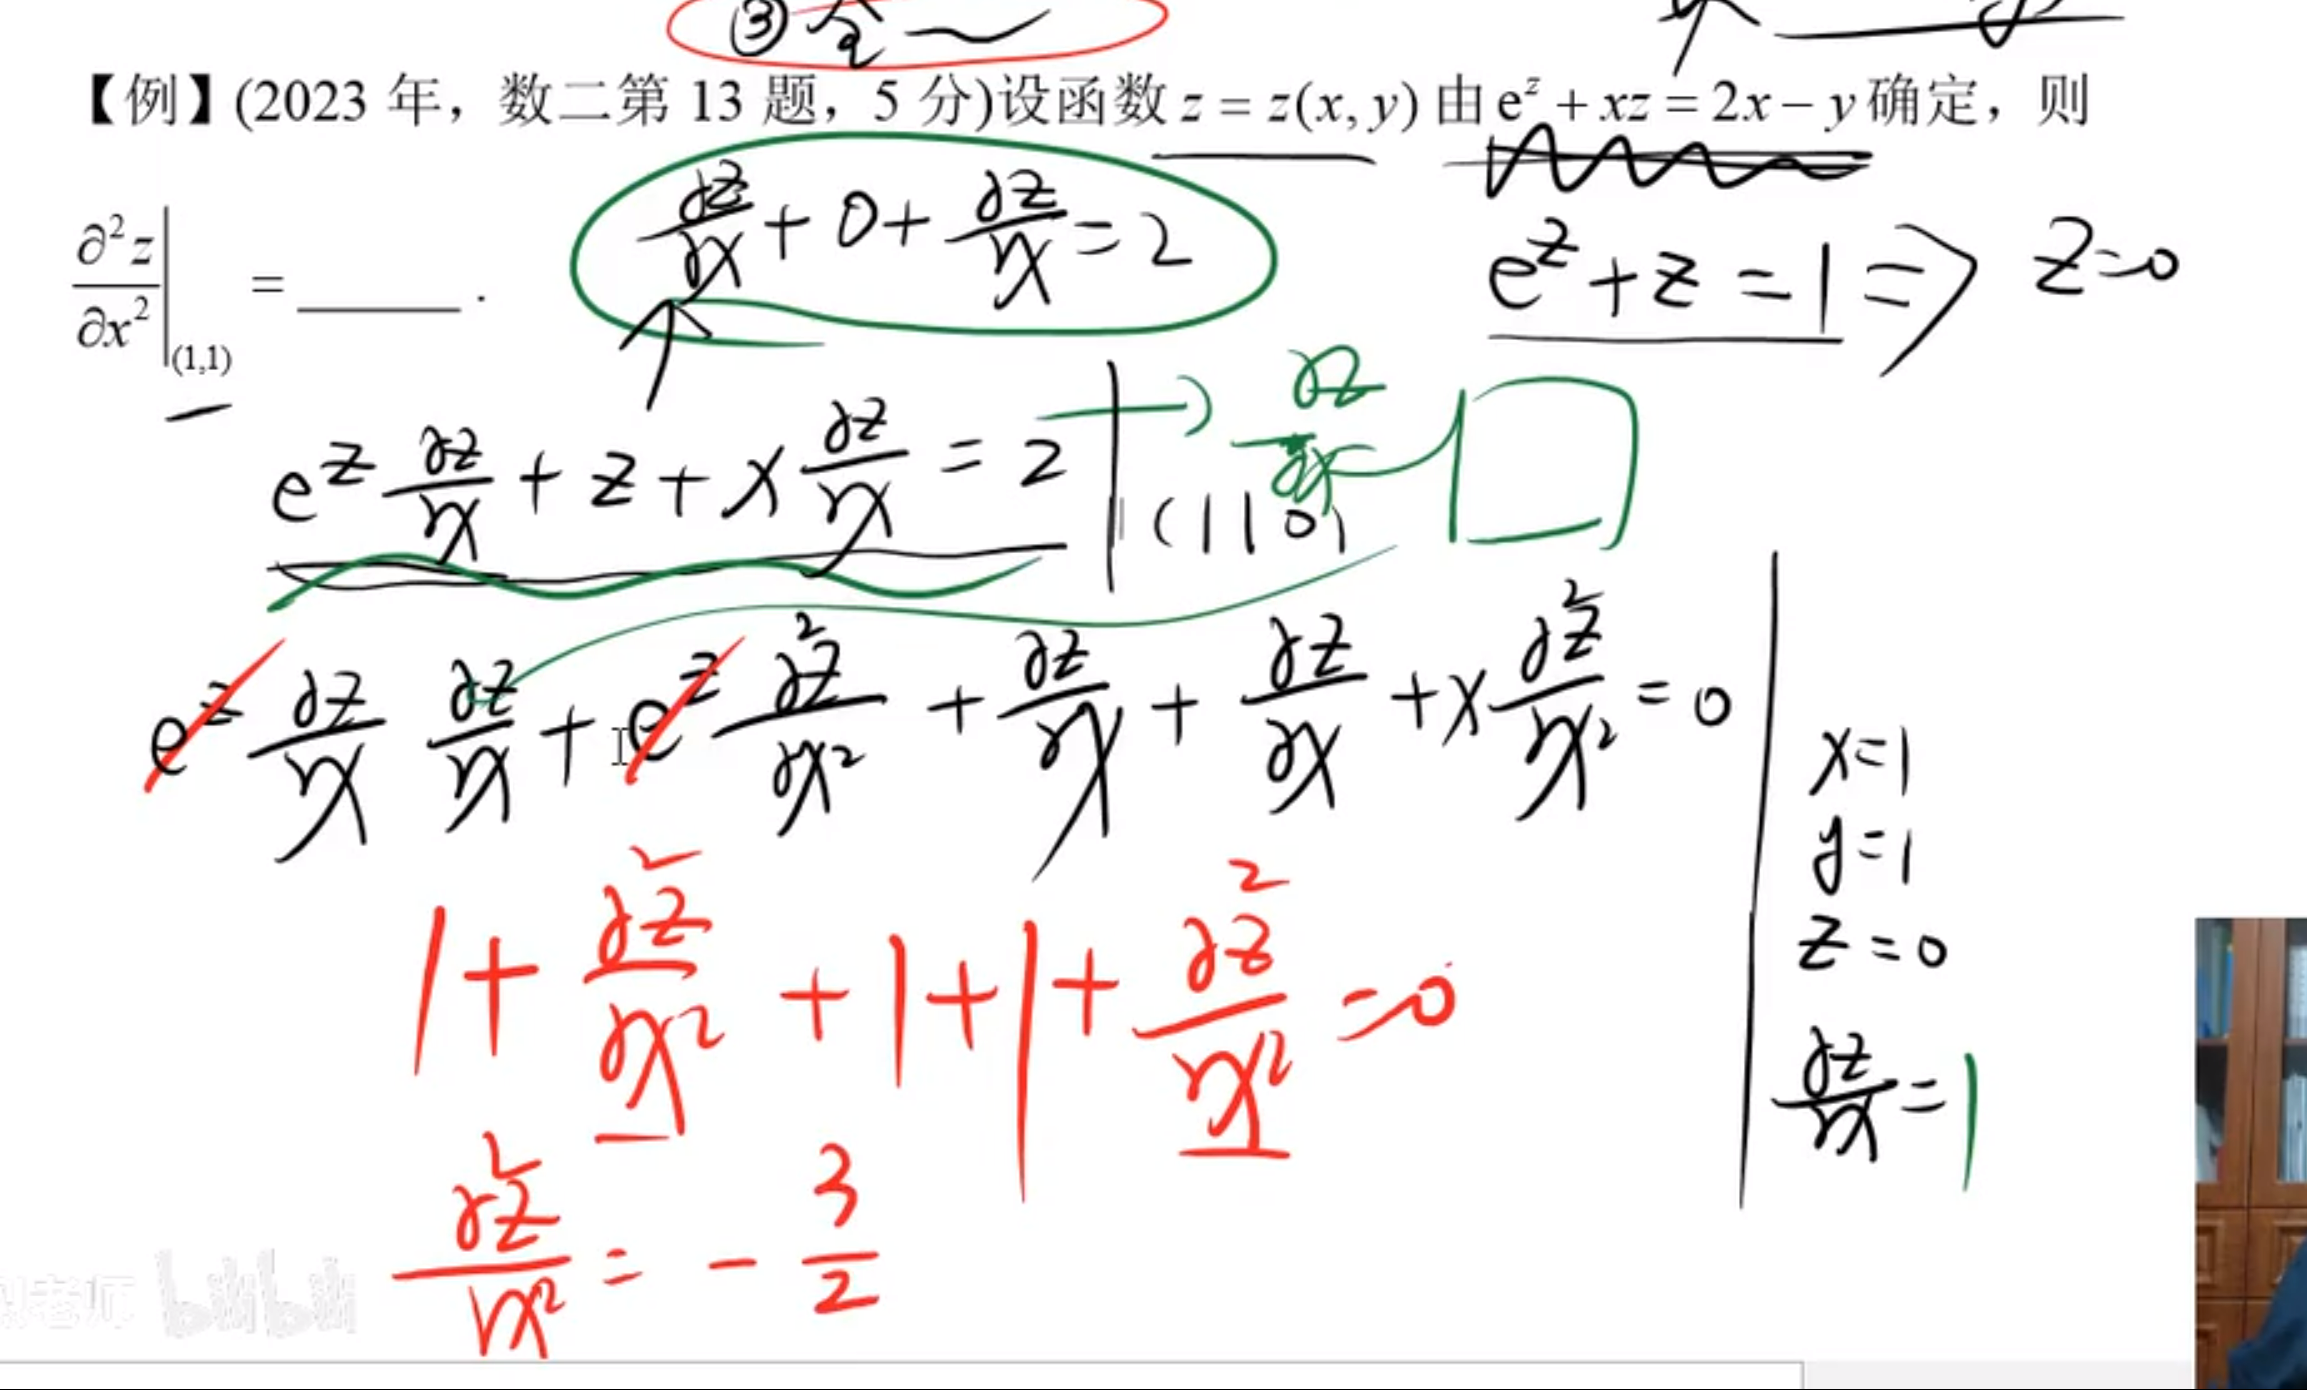 ③全
【例】(2023 年，数二第 13 题，5 分)设函数 z = z(x, y) 由 e^z + xz = 2x − y 确定，则
∂²z/∂x² |(1,1) = ______ .
∂z/∂x + 0 + ∂z/∂x = 2
e^z + z = 1 ⇒ z=0
e^z ∂z/∂x + z + x ∂z/∂x = 2 | (1 1 0)
→ ∂z/∂x
e^z ∂z/∂x ∂z/∂x + e^z ∂²z/∂x² + ∂z/∂x + ∂z/∂x + x ∂²z/∂x² = 0
x=1
y=1
z=0
∂z/∂x = 1
1 + ∂²z/∂x² + 1 + 1 + ∂²z/∂x² = 0
∂²z/∂x² = − 3/2
老师 bilibili